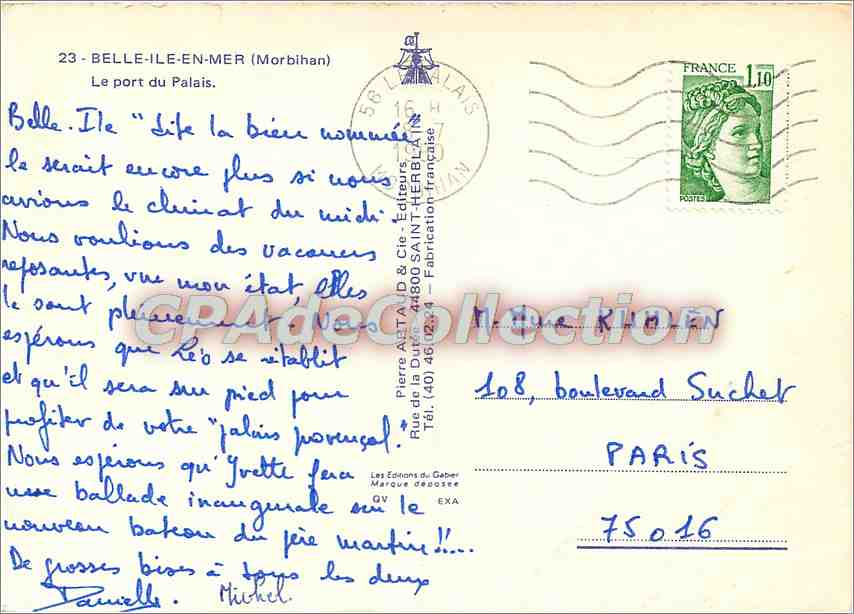 23 - BELLE-ILE-EN-MER (Morbihan)
Le port du Palais.
Belle-Ile "dite la bien nommée"
le serait encore plus si nous
avions le climat du midi.
Nous voulions des vacances
reposantes, vue mon état, elles
le sont pleinement. Nous
espérons que Léo se rétablit
et qu'il sera sur pied pour
profiter de votre "palais provençal."
Nous espérons qu'Yvette fera
une ballade inaugurale sur le
nouveau bateau du père martin!!...
De grosses bises à tous les deux
Danielle. Michel.
Pierre ARTAUD & Cie - Editeurs
Rue de la Dutée - 44800 SAINT-HERBLAIN
Tél. (40) 46.02.24 — Fabrication française
Les Editions du Gabier
Marque déposée
QV EXA
56 LE PALAIS
16 H
7
MORBIHAN
FRANCE 1,10
POSTES
CPAdeCollection
M. Mme KUMLEN
108, boulevard Suchet
PARIS
75016